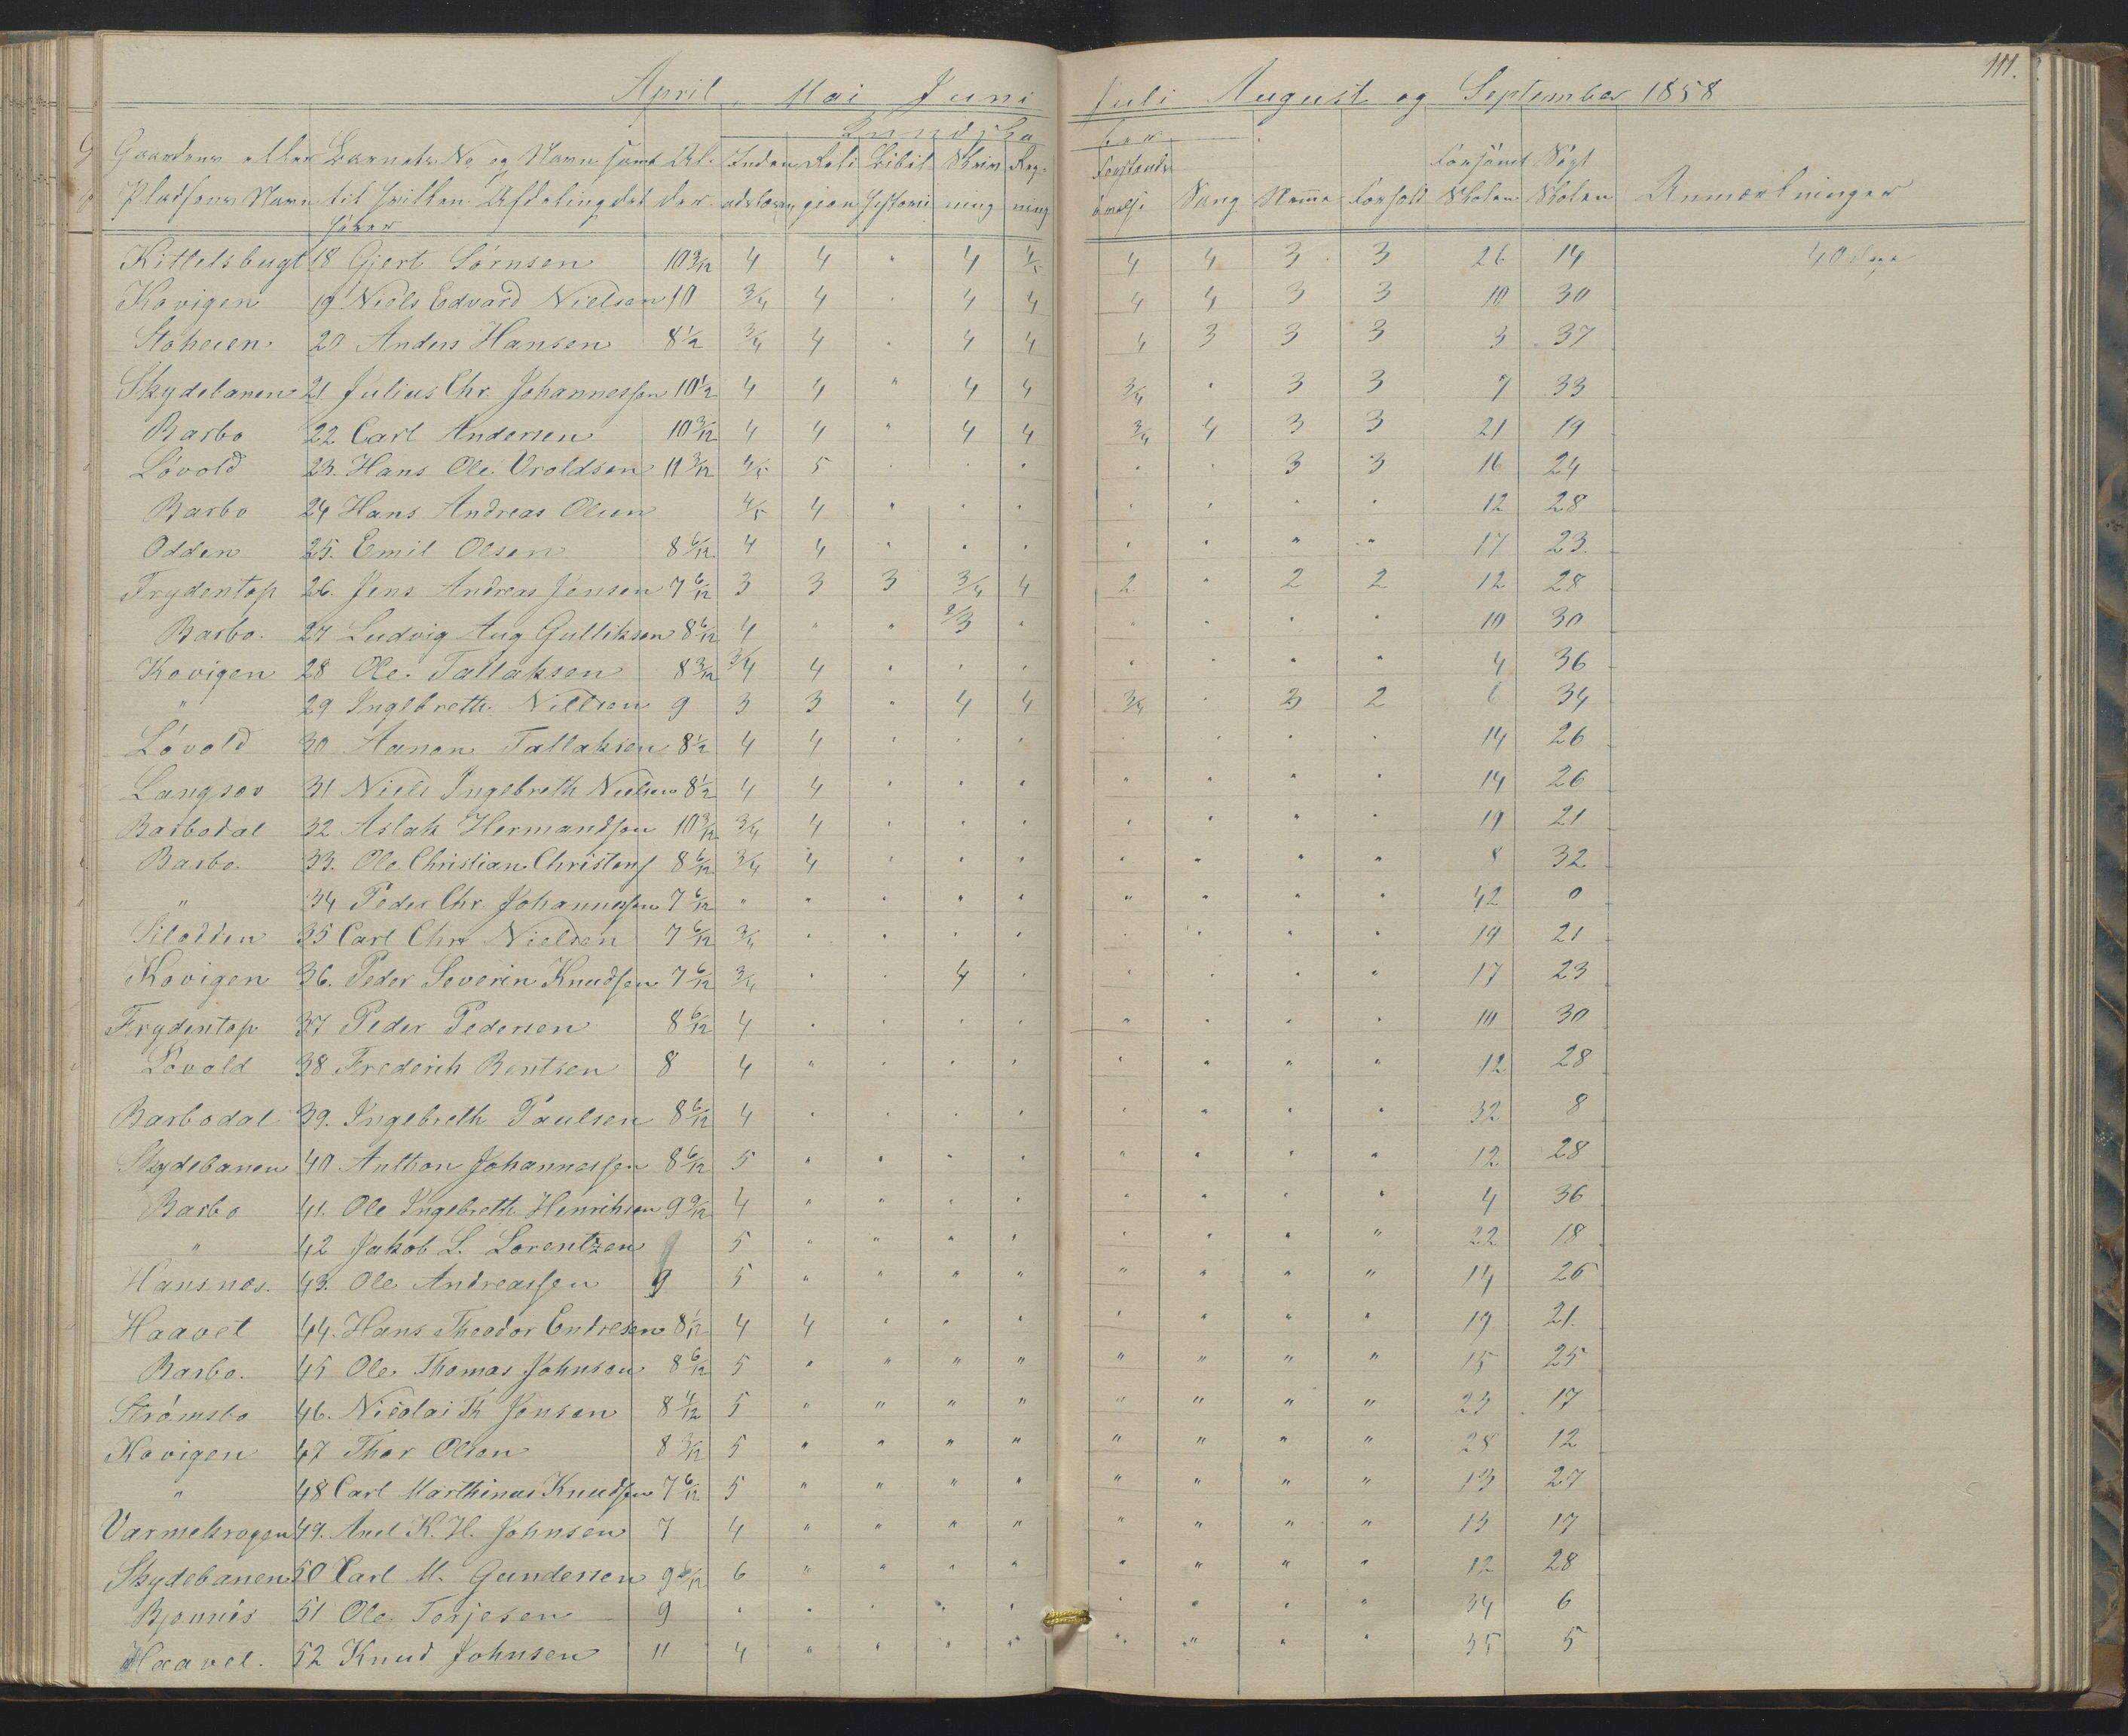 111.
April, Mai Juni Juli August og September 1858
Kundska ber
Gaardens eller Barnets No og Navn samt Al- Inden Reli Bibel Skriv Reg- Forstands Forsømt Søgt
Pladsens Navn til hvilken Afdeling det der adslæsn gion historie ning ning øvelse Sang Stemme Forhold Skolen Skolen Anmærkninger
hører
Kittelsbugt 18 Gjert Sørnsen 10 3/12 4 4 " 4 4/5 4 4 3 3 26 14 40 Dage
Kovigen 19 Niels Edvard Nielsen 10 3/4 4 " 4 4 4 4 3 3 10 30
Stoheien 20 Anders Hansen 8 1/2 3/4 4 " 4 4 4 3 3 3 3 37
Skydebanen 21 Julius Chr. Johannessen 10 1/2 4 4 " 4 4 3/4 " 3 3 7 33
Barbo 22 Carl Andersen 10 3/12 4 4 " 4 4 3/4 4 3 3 21 19
Løvold 23. Hans Ole Vroldsen 11 3/12 4/5 5 " " " " " 3 3 16 24
Barbo 24 Hans Andreas Olsen 4/5 4 " " " " " " " 12 28
Odden 25. Emil Olsen 8 6/12 4 4 " " " " " " " 17 23
Frydentop 26. Jens Andreas Jensen 7 6/12 3 3 3 3/4 4 2 " 2 2 12 28
Barbo. 27 Ludvig Aug Gulliksen 8 6/12 4 " " 2/3 " " " " " 10 30
Kovigen 28 Ole Tallaksen 8 3/12 3/4 4 " " " " " " " 4 36
" 29 Ingebreth Nielsen 9 3 3 " 4 4 3/4 " 3 2 6 34
Løvold 30 Hanon Tallaksen 8 1/2 4 4 " " " " " " " 14 26
Langsæv 31 Niels Ingebreth Nielsen 8 1/2 4 4 " " " " " " " 14 26
Barbodal 32 Aslak Hermandsen 10 3/12 3/4 4 " " " " " " " 19 21
Barbo. 33. Ole Christian Christens 8 6/12 3/4 4 " " " " " " " 8 32
" 34 Peder Chr. Johannessen 7 6/12 " " " " " " " " " 42 0
Silodden 35 Carl Chr Nielsen 7 6/12 3/4 " " " " " " " " 19 21
Kovigen 36. Peder Severin Knudsen 7 6/12 3/4 " " 4 " " " " " 17 23
Frydentop 37 Peder Pedersen 8 6/12 4 " " " " " " " " 10 30
Løvold 38 Frederik Bentsen 8 4 " " " " " " " " 12 28
Barbodal 39. Ingebreth Paulsen 8 6/12 4 " " " " " " " " 32 8
Skydebanen 40 Anthon Johannessen 8 6/12 5 " " " " " " " " 12 28
Barbo 41. Ole Ingebreth Henriksen 9 9/12 4 " " " " " " " " 4 36
" 42 Jakob L. Lorentzen 5 " " " " " " " " 22 18
Hansnæs. 43. Ole Andreassen 9 5 " " " " " " " " 14 26
Haavet 44. Hans Theodor Endresen 8 1/12 4 4 " " " " " " " 19 21
Barbo. 45 Ole Thomas Johnsen 8 6/12 5 " " " " " " " " 15 25
Strømsbo 46. Nicolai Th Jensen 8 4/12 5 " " " " " " " " 23 17
Kovigen 47 Thor Olsen 8 3/12 5 " " " " " " " " 28 12
" 48 Carl Marthinus Knudsen 7 6/12 5 " " " " " " " " 13 27
Varmekrogen 49. Axel K. H. Johnsen 7 4 " " " " " " " " 13 17
Skydebanen 50 Carl M. Gundersen 9 6/12 6 " " " " " " " " 12 28
Bjønnes 51 Ole Terjesen 9 " " " " " " " " " 34 6
Haavet. 52 Knud Johnsen 11 4 " " " " " " " " 35 5